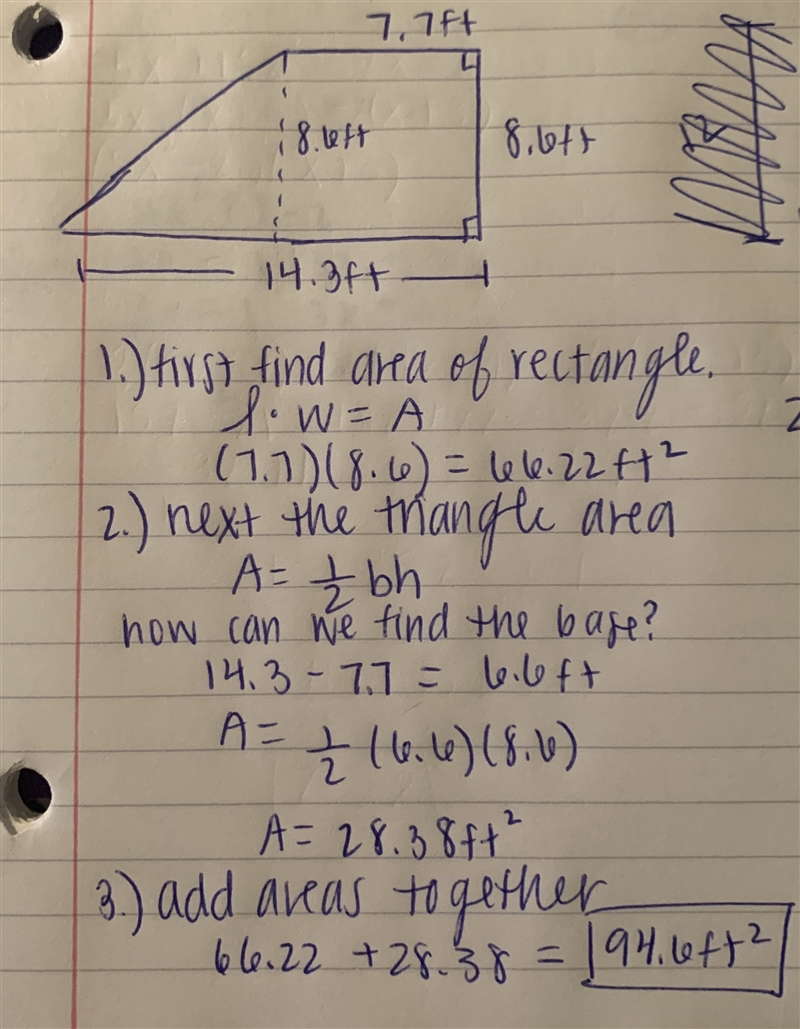 7.7ft
8.6ft
8.6ft
14.3ft
1.) first find area of rectangle.
l · w = A
(7.7)(8.6) = 66.22 ft²
2.) next the triangle area
A = 1/2 bh
how can we find the base?
14.3 - 7.7 = 6.6ft
A = 1/2 (6.6)(8.6)
A = 28.38ft²
3.) add areas together
66.22 + 28.38 = 94.6ft²